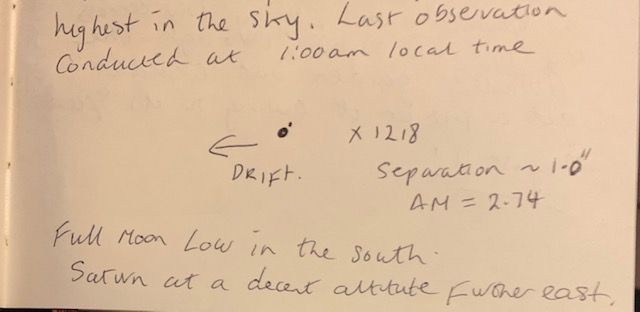 highest in the sky. Last observation
Conducted at 1:00am local time
x 1218
DRIFT.
Separation ~ 1.0"
ΔM = 2.74
Full Moon Low in the South.
Saturn at a decent altitute Further east.